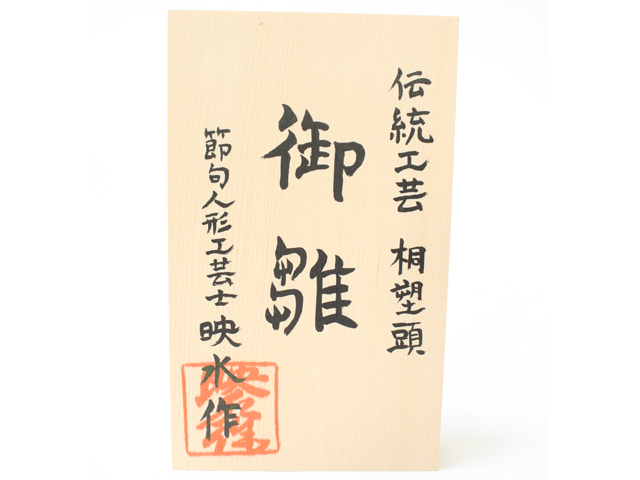 伝統工芸 桐塑頭
御雛
節句人形工芸士映水作